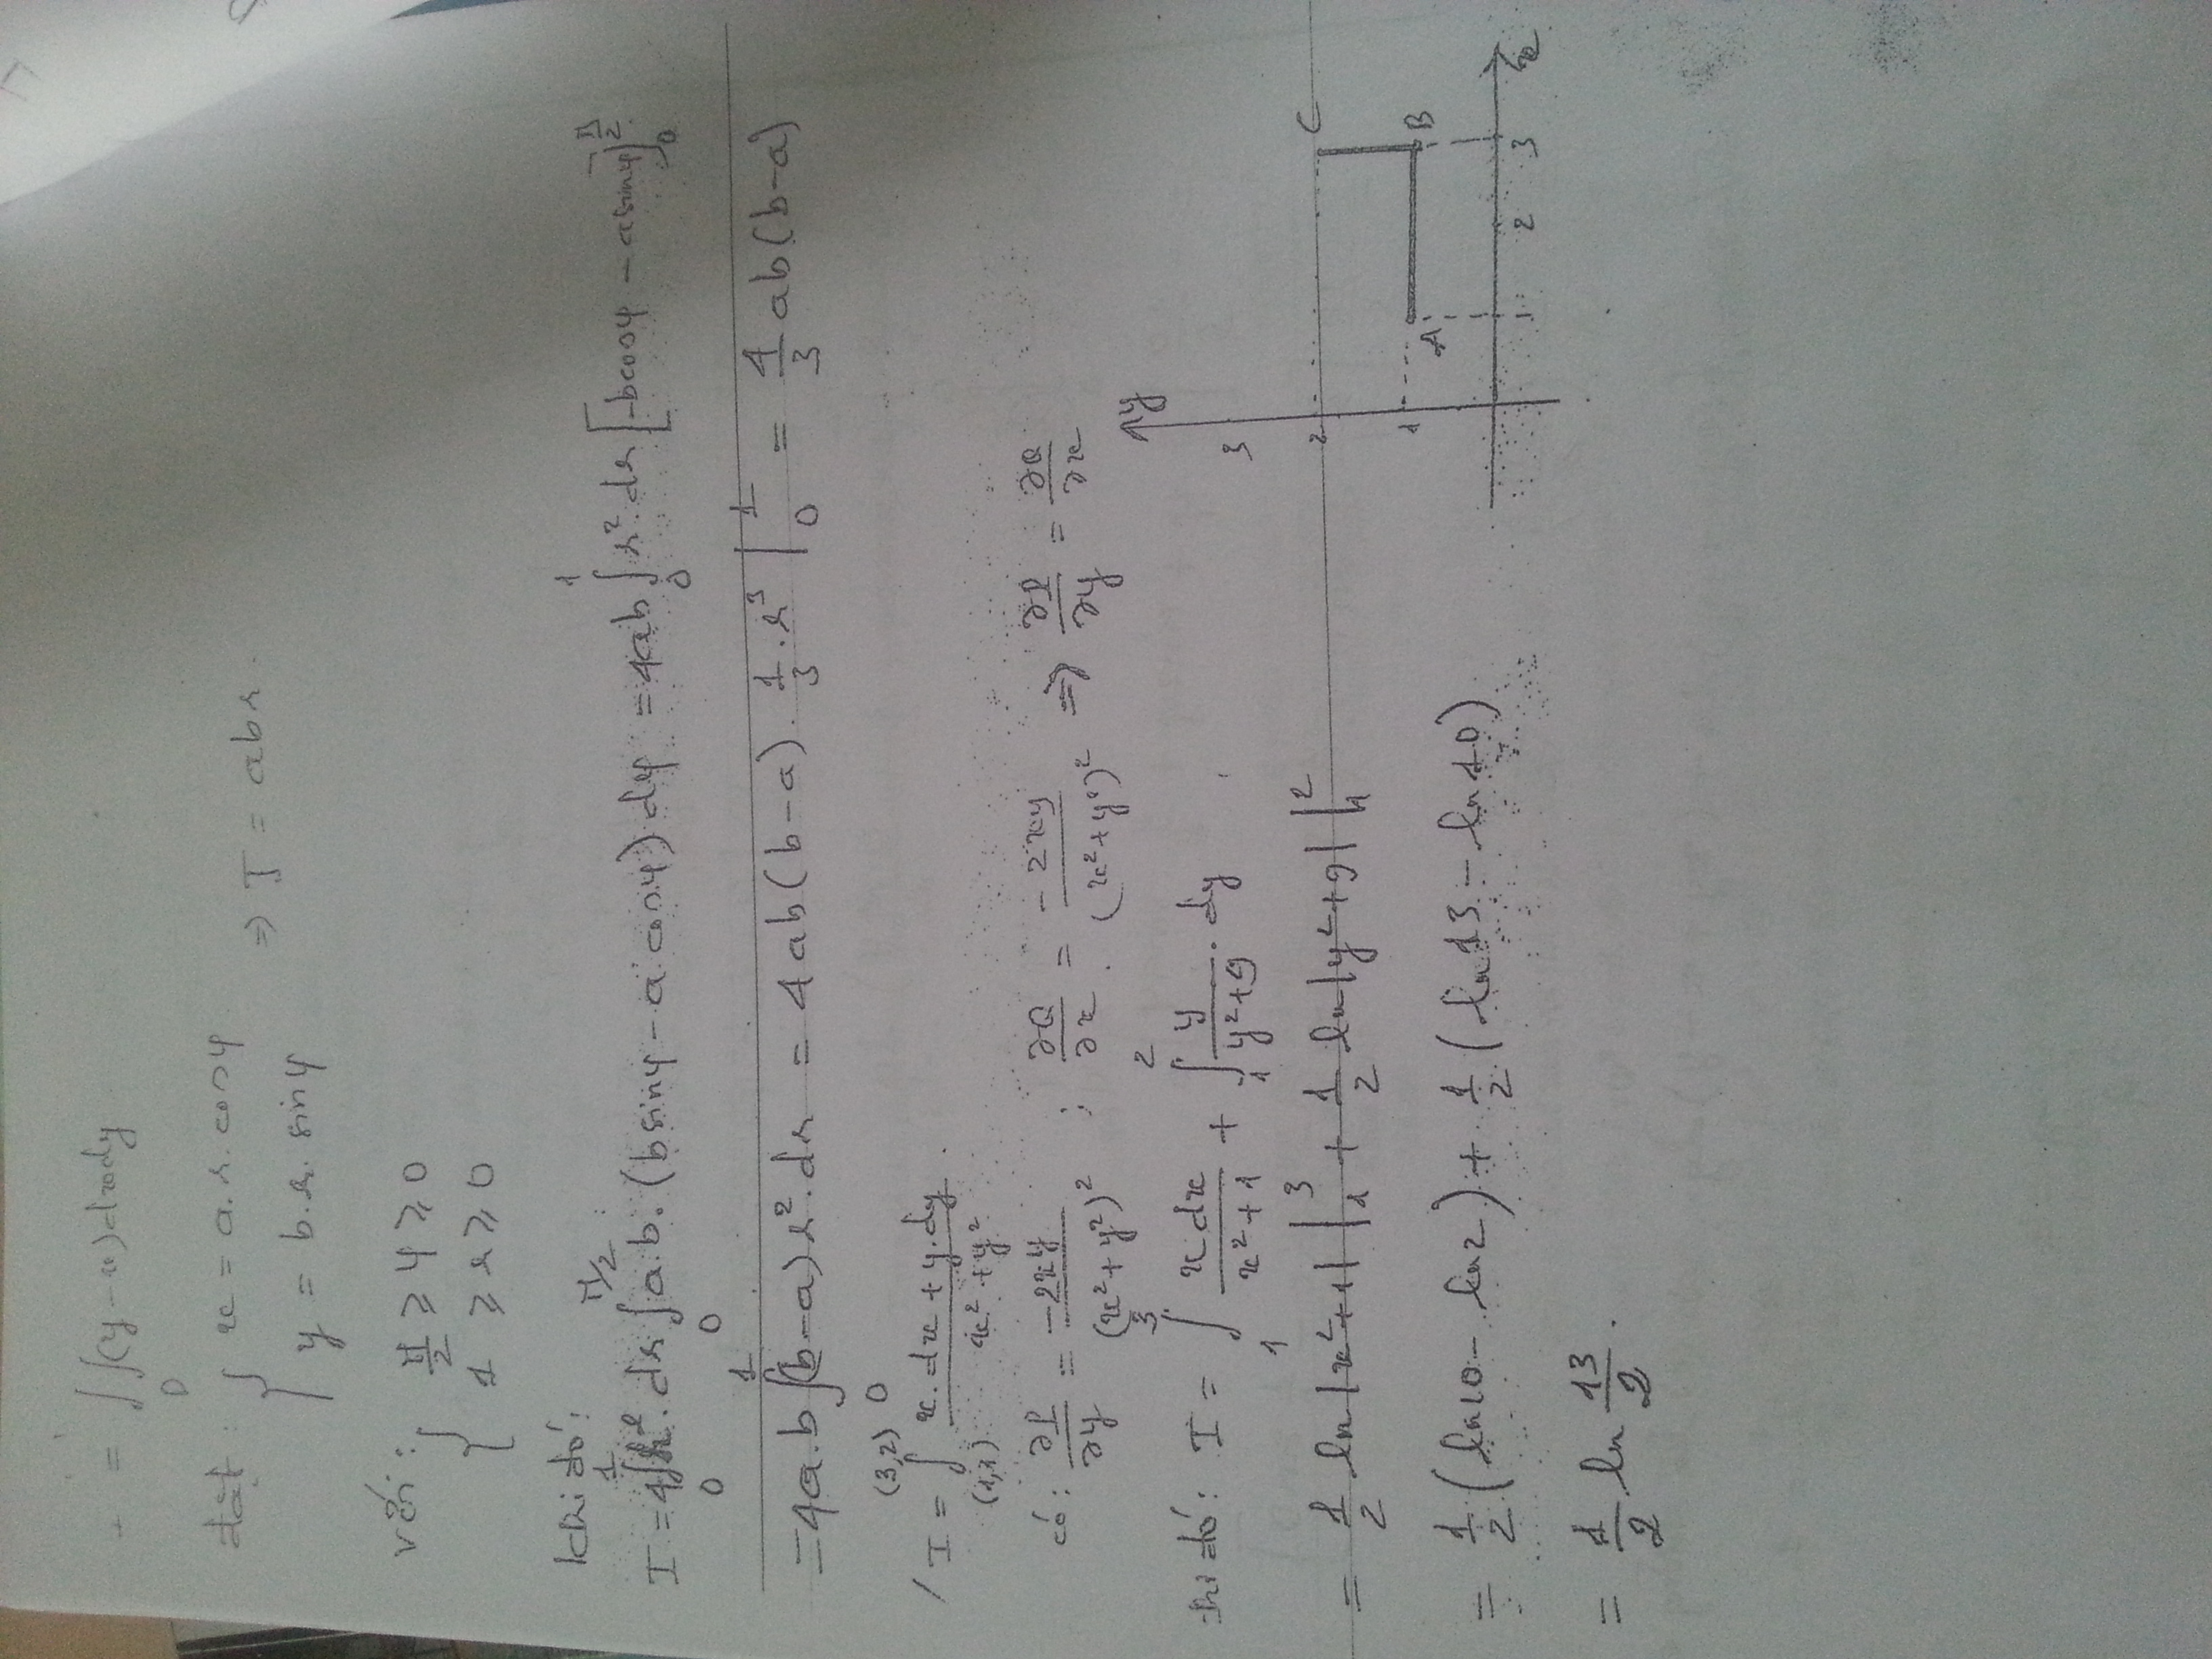 = ∬(y-x)dxdy
D
đặt: { x = a.r.cosφ
y = b.r.sinφ
⇒ J = abr.
với: { π/2 ≥ φ ≥ 0
1 ≥ r ≥ 0
Khi đó:
I = 4∫₀¹ r². dr ∫₀^{π/2} a.b.(bsinφ - a.cosφ)dφ = 4ab ∫₀¹ r².dr [-bcosφ - asinφ]₀^{π/2}
= 4a.b ∫₀¹ (b-a) r².dr = 4ab(b-a). 1/3 .r³ |₀¹ = 4/3 ab(b-a)
/ I = ∫_{(1,1)}^{(3,2)} (x.dx + y.dy)/(x²+y²).
có: ∂P/∂y = -2xy/(x²+y²)² ; ∂Q/∂x = -2xy/(x²+y²)² ⇒ ∂P/∂y = ∂Q/∂x
khi đó: I = ∫₁³ xdx/(x²+1) + ∫₁² y/(y²+9) . dy
= 1/2 ln|x²+1| |₁³ + 1/2 ln|y²+9| |₁²
= 1/2 (ln10 - ln2) + 1/2 (ln13 - ln10)
= 1/2 ln 13/2 .
y
3
2 C
1 A B
1 2 3 x